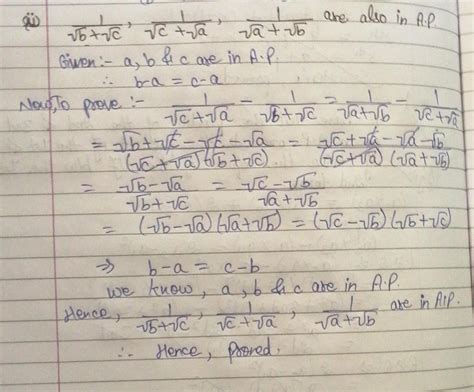 ii) 1/(√b+√c), 1/(√c+√a), 1/(√a+√b) are also in A.P.
Given:- a, b & c are in A.P.
∴ b-a = c-a
Now, To prove:- 1/(√c+√a) - 1/(√b+√c) = 1/(√a+√b) - 1/(√c+√a)
= (√b+√c-√c-√a)/((√c+√a)(√b+√c)) = (√c+√a-√a-√b)/((√c+√a)(√a+√b))
= (√b-√a)/(√b+√c) = (√c-√b)/(√a+√b)
= (√b-√a)(√a+√b) = (√c-√b)(√b+√c)
⇒ b-a = c-b
we know, a, b & c are in A.P.
Hence, 1/(√b+√c), 1/(√c+√a), 1/(√a+√b) are in A.P.
∴ Hence, Proved.